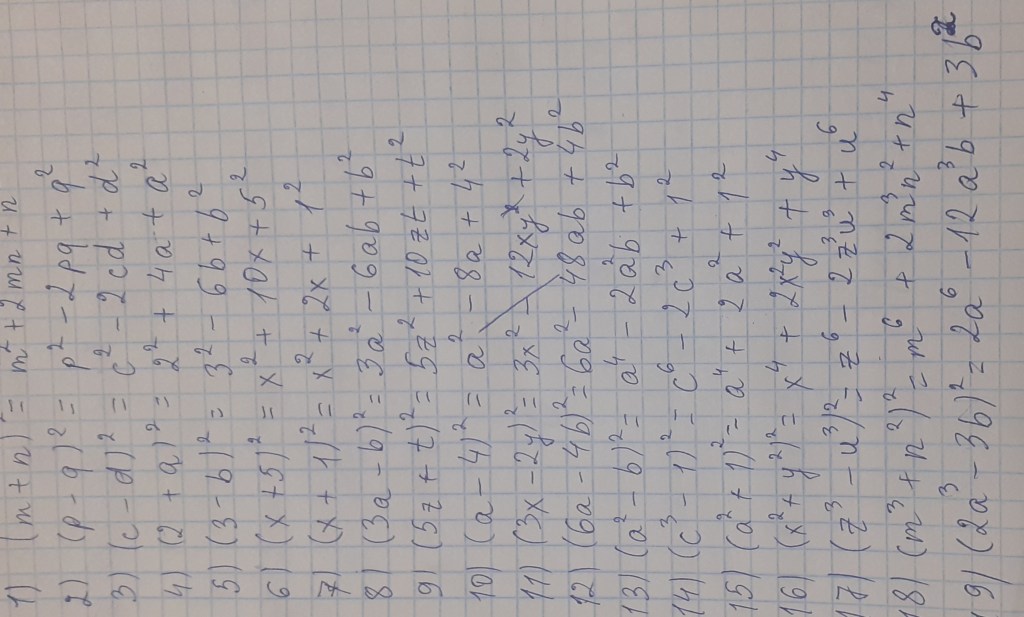 1) (m + n)² = m² + 2mn + n
2) (p - q)² = p² - 2pq + q²
3) (c - d)² = c² - 2cd + d²
4) (2 + a)² = 2² + 4a + a²
5) (3 - b)² = 3² - 6b + b²
6) (x + 5)² = x² + 10x + 5²
7) (x + 1)² = x² + 2x + 1²
8) (3a - b)² = 3a² - 6ab + b²
9) (5z + t)² = 5z² + 10zt + t²
10) (a - 4)² = a² - 8a + 4²
11) (3x - 2y)² = 3x² - 12xy + 2y²
12) (6a - 4b)² = 6a² - 48ab + 4b²
13) (a² - b)² = a⁴ - 2a²b + b²
14) (c³ - 1)² = c⁶ - 2c³ + 1²
15) (a² + 1)² = a⁴ + 2a² + 1²
16) (x² + y²)² = x⁴ + 2x²y² + y⁴
17) (z³ - u³)² = z⁶ - 2z³u³ + u⁶
18) (m³ + n²)² = m⁶ + 2m³n² + n⁴
19) (2a³ - 3b)² = 2a⁶ - 12a³b + 3b²